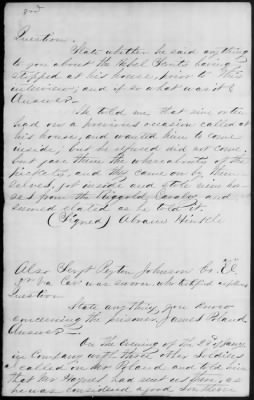 3rd
Question.
State whether he said anything
to you about the Rebel Scouts having
stopped at his house, prior to this
interview; and if so what was it?
Answer.
He told me that nine others
had on a previous occasion called at
his house, and wanted him to come
inside; but he refused did not come,
but gave them the whereabouts of the
pickets, and they came on by them-
selves, got inside and stole nine hor-
ses from the Ringgold Cavalry and
seemed elated as he told it.
(Signed) Abram Hinkle
Also Sergt Peyton Johnson Co. "E"
Va Cav was sworn who testified as follows
Question
State anything you know
concerning the prisoner, James Poland.
Answer.
On the Evening of the
in Company with three other Soldiers
I called on Mr Poland and told him
that Mr Haynes had sent us there, as
he was considered a good Southern